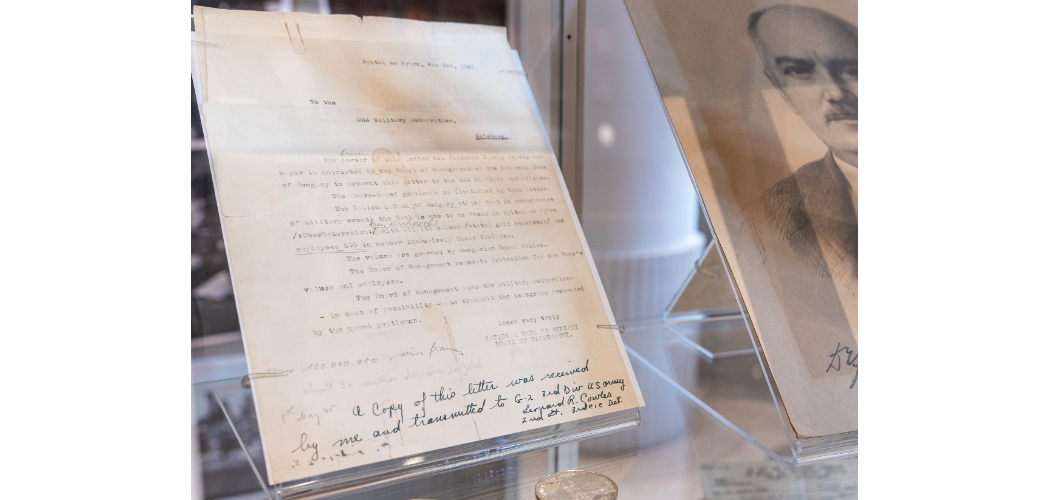 Spital am Pyhrn, May
To the
USA Military Authorities,
Salzburg.
The bearer of this letter Dr.
nager is entrusted by the Board of Management of the National Bank
of Hungary to present this letter to the USA Military Authorities.
The above-named gentleman is identified by this letter.
The National Bank of Hungary states that in consequence
of military events the Bank is now to be found in Spital am Pyhrn
with all its values /stated gold reserves/ and
employees 650 in number inclusively their families.
The values are guarded by Hungarian Royal Police.
The Board of Management requests protection for the Bank's
values and employees.
The Board of Management asks the Military Authorities
- in case of possibility - to transmit the telegrams presented
by the named gentleman.
Yours very truly
NATIONAL BANK OF HUNGARY
BOARD OF MANAGEMENT.
100.000.000 swiss francs
a Copy of this letter was received
by me and transmitted to G-2 3rd Div US army
Leonard R. Cowles
2nd Lt. 3rd C.I.C Det.